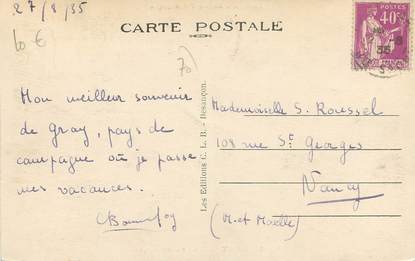 27/8/35
10 €
CARTE POSTALE
POSTES
40c
70
Mon meilleur souvenir
de Gray, pays de
campagne où je passe
mes vacances.
Mademoiselle S. Roussel
108 rue St Georges
Nancy
(M. et Moselle)
Les Editions C. L. B. - Besançon.